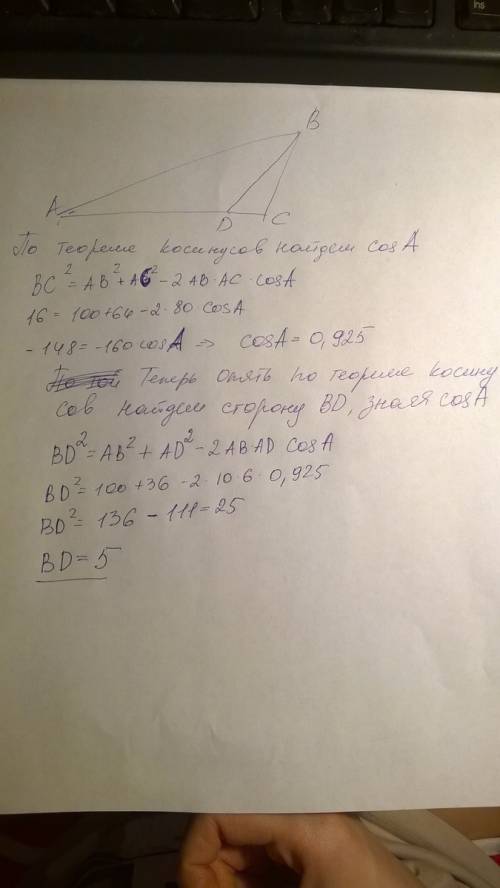 Ins
B
A
D
C
По теореме косинусов найдем cosA
BC² = AB² + AC² - 2 AB·AC·cosA
16 = 100+64 - 2·80·cosA
-148 = -160 cosA => cosA = 0,925
Теперь опять по теореме косину
сов найдем сторону BD, зная cosA
BD² = AB² + AD² - 2AB·AD cosA
BD² = 100 + 36 - 2·10·6·0,925
BD² = 136 - 111 = 25
BD = 5